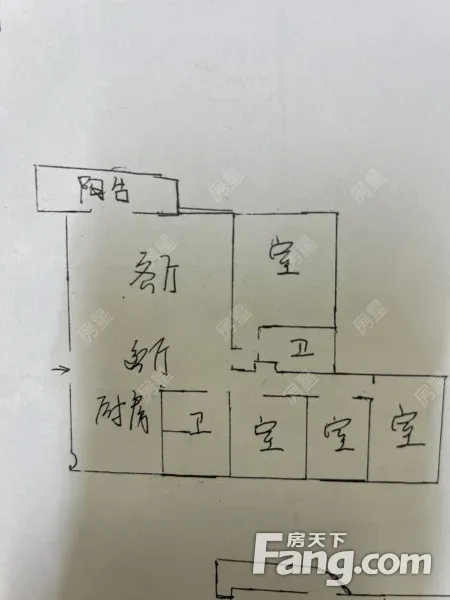 阳台
客厅
室
客厅
卫
厨房
卫
室
室
室
房天下
Fang.com